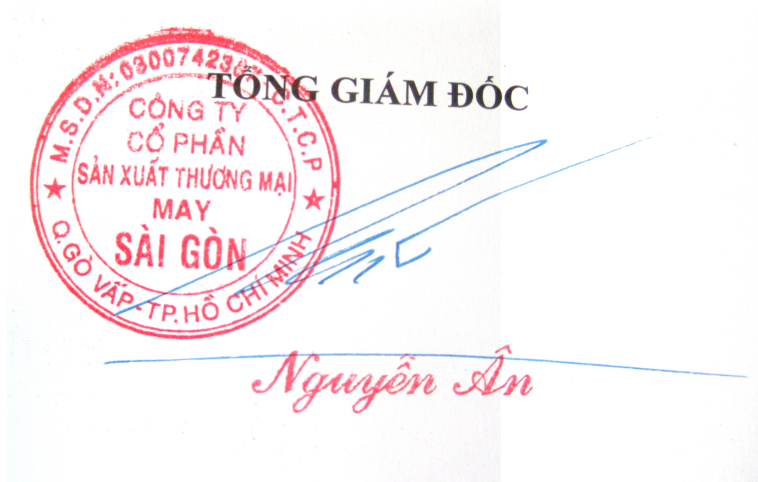 TỔNG GIÁM ĐỐC
M.S.D.N: 03007423
C.T.C.P
CÔNG TY
CỔ PHẦN
SẢN XUẤT THƯƠNG MẠI
MAY
SÀI GÒN
Q.GÒ VẤP-TP.HỒ CHÍ MINH
Nguyễn Ân